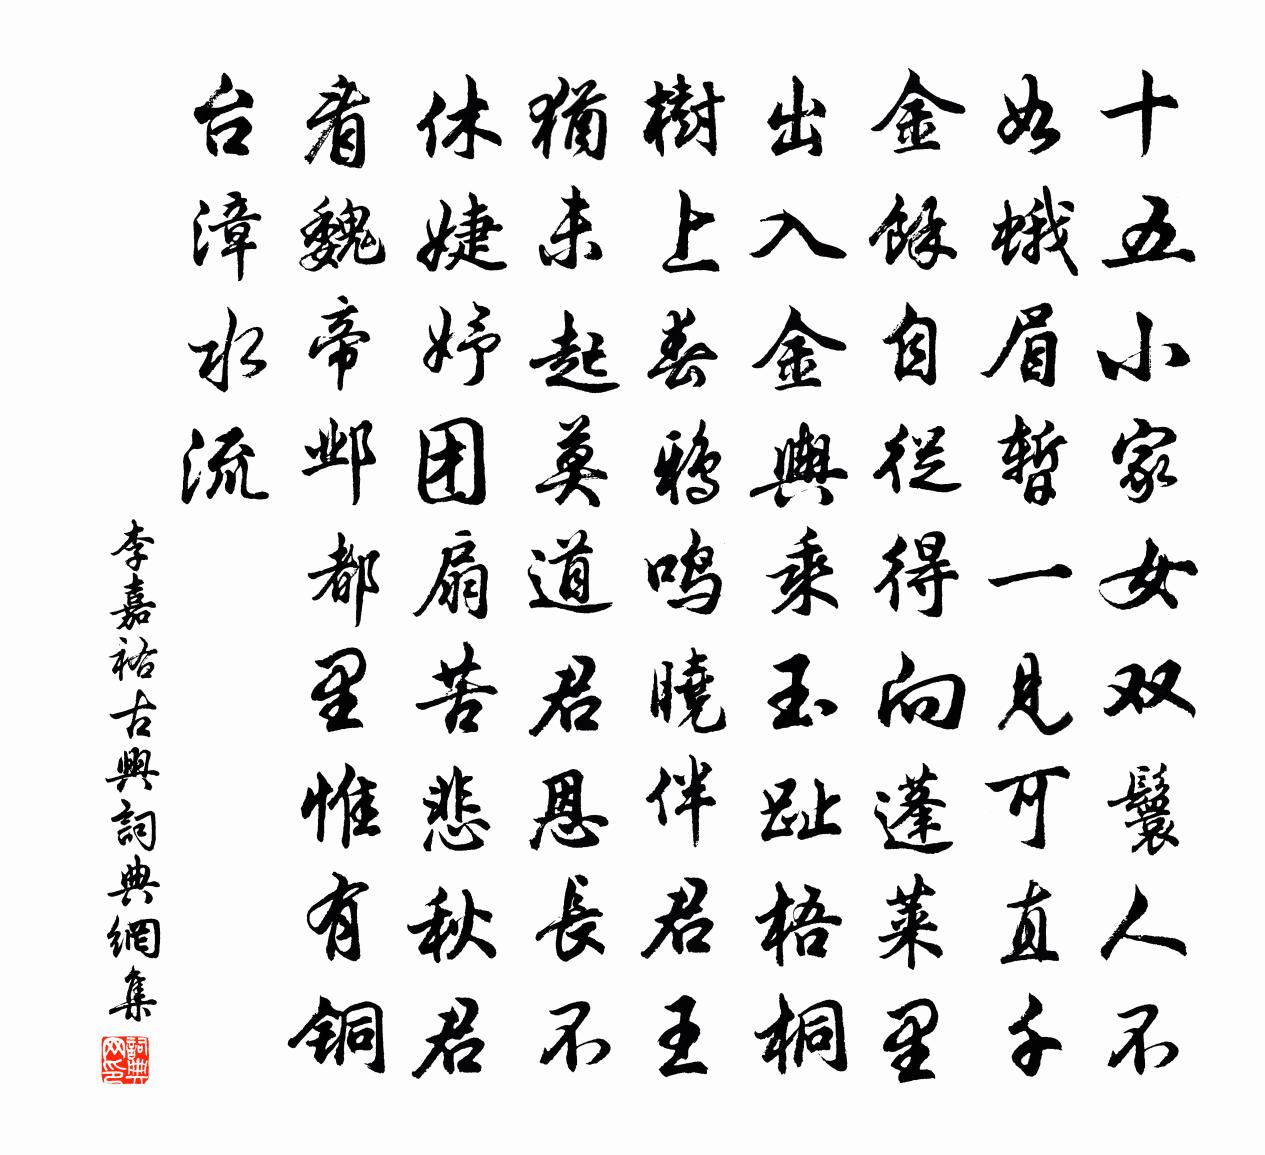 十五小家女双鬟人不
如蛾眉暂一见可直千
金馀自从得向蓬莱里
出入金舆乘玉趾梧桐
樹上春鸦鸣曉伴君王
猶未起莫道君恩長不
休婕妤团扇苦悲秋君
看魏帝邺都里惟有铜
台漳水流
李嘉祐古興詞典網集
詞典网印